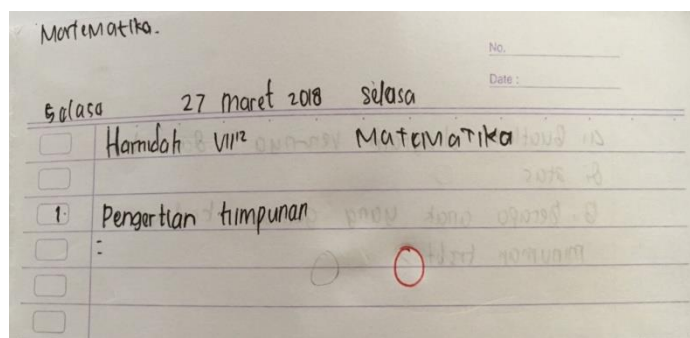 Matematika.
No.
Date :
Selasa 27 maret 2018 selasa
Hamidah VII12 MATEMATIKA
1. Pengertian himpunan
: